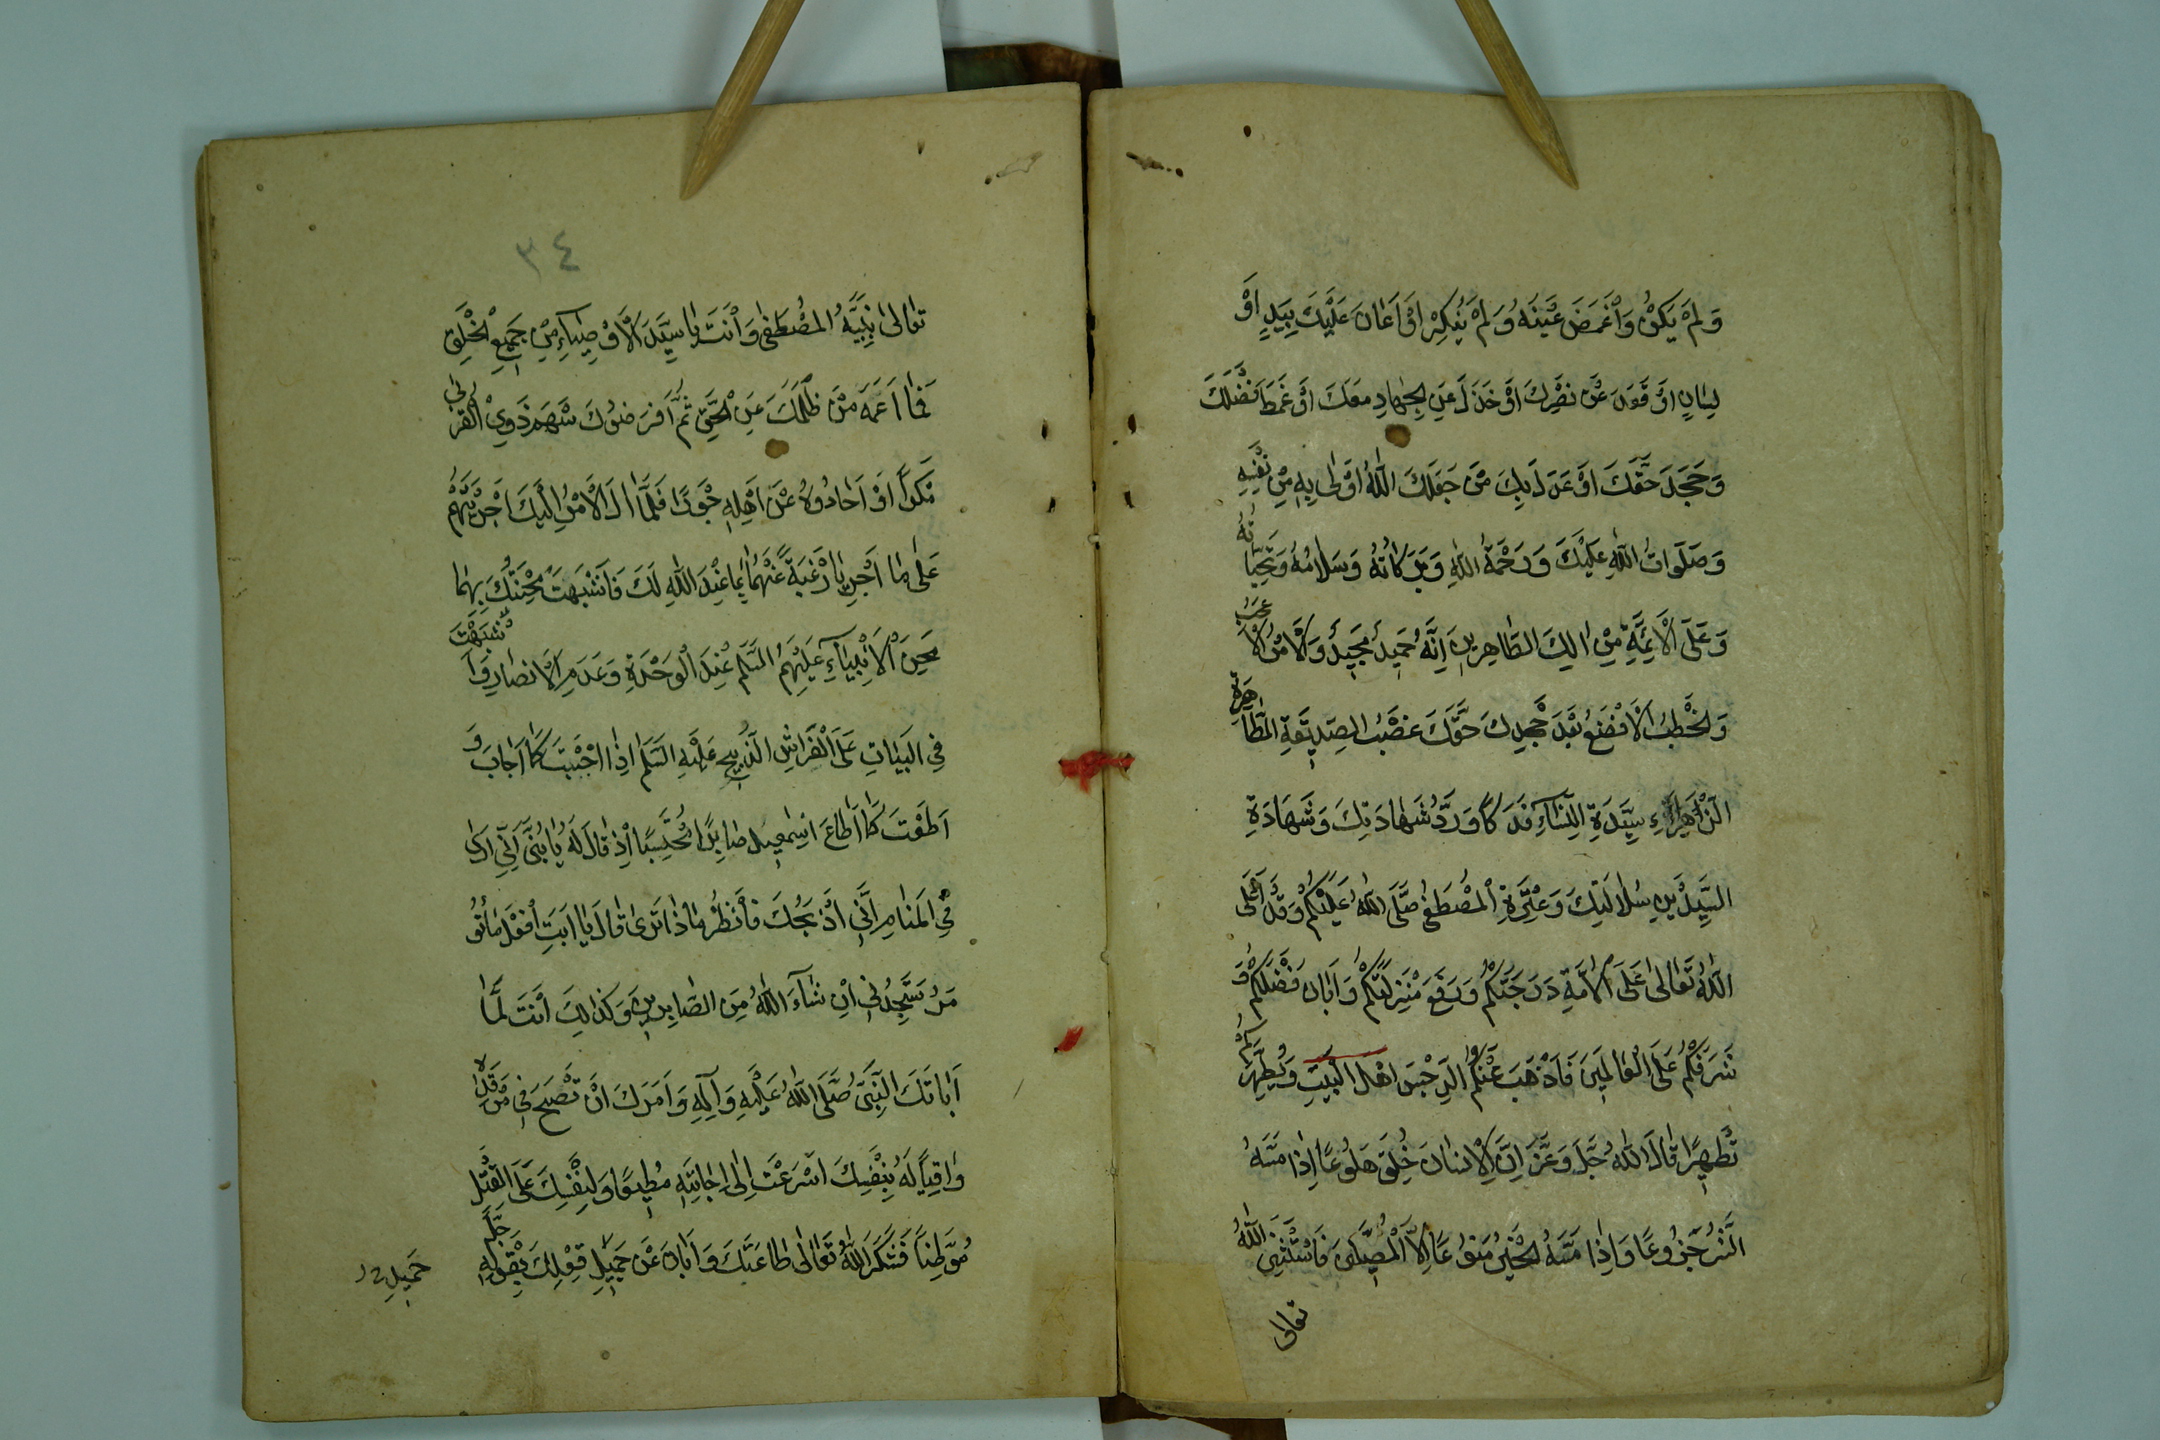 وَلَمْ يَكُنْ وَاَغْمَضَ عَيْنَهُ وَلَمْ يُنْكِرْ اَوْ اَعَانَ عَلَيْكَ بِيَدٍ اَوْ
لِسَانٍ اَوْ قَعَدَ عَنْ نَصْرِكَ اَوْ خَذَلَ عَنِ الْجِهَادِ مَعَكَ اَوْ غَمَطَ فَضْلَكَ
وَجَحَدَ حَقَّكَ اَوْ عَدَلَ بِكَ مَنْ جَعَلَكَ اللّٰهُ اَوْلٰى بِهِ مِنْ نَفْسِهِ
وَصَلَوَاتُ اللّٰهِ عَلَيْكَ وَرَحْمَةُ اللّٰهِ وَبَرَكَاتُهُ وَسَلَامُهُ وَتَحِيَّاتُهُ
وَعَلَى الْاَئِمَّةِ مِنْ اٰلِكَ الطَّاهِرِينَ اِنَّهُ حَمِيدٌ مَجِيدٌ وَالْاَمْرُ الْاَعْجَبُ
وَالْخَطْبُ الْاَفْضَعُ بَعْدَ جَحْدِكَ حَقَّكَ غَصْبُ الصِّدِّيقَةِ الطَّاهِرَةِ
الزَّهْرَاءِ سَيِّدَةِ النِّسَاءِ فَدَكًا وَرَدُّ شَهَادَتِكَ وَشَهَادَةِ
السَّيِّدَيْنِ سُلَالَتِكَ وَعِتْرَةِ الْمُصْطَفٰى صَلَّى اللّٰهُ عَلَيْكُمْ وَقَدْ اَعْلَى
اللّٰهُ تَعَالٰى عَلَى الْاُمَّةِ دَرَجَتَكُمْ وَرَفَعَ مَنْزِلَتَكُمْ وَاَبَانَ فَضْلَكُمْ وَ
شَرَّفَكُمْ عَلَى الْعَالَمِينَ فَاَذْهَبَ عَنْكُمُ الرِّجْسَ اَهْلَ الْبَيْتِ وَيُطَهِّرَكُمْ
تَطْهِيرًا قَالَ اللّٰهُ جَلَّ وَعَزَّ اِنَّ الْاِنْسَانَ خُلِقَ هَلُوعًا اِذَا مَسَّهُ
الشَّرُّ جَزُوعًا وَاِذَا مَسَّهُ الْخَيْرُ مَنُوعًا اِلَّا الْمُصَلِّينَ فَاسْتَثْنَى اللّٰهُ
تعالى
٣٤
تَعَالٰى نَبِيَّهُ الْمُصْطَفٰى وَاَنْتَ يَا سَيِّدَ الْاَوْصِيَاءِ مِنْ جَمِيعِ الْخَلْقِ
فَمَا اَعْمَهَ مَنْ ظَلَمَكَ عَنِ الْحَقِّ ثُمَّ اَفْرَضُوكَ سَهْمَ ذَوِي الْقُرْبٰى
مَكْرًا اَوْ اَحَادُوهُ عَنْ اَهْلِهِ جَوْرًا فَلَمَّا اٰلَ الْاَمْرُ اِلَيْكَ اَجْرَيْتَهُمْ
عَلٰى مَا اَجْرَيَا رَغْبَةً عَنْهُمَا بِمَا عِنْدَ اللّٰهِ لَكَ فَاَشْبَهَتْ مِحْنَتُكَ بِهِمَا
مِحَنَ الْاَنْبِيَاءِ عَلَيْهِمُ السَّلَامُ عِنْدَ الْوَحْدَةِ وَعَدَمِ الْاَنْصَارِ وَاَشْبَهْتَ
فِي الْبَيَاتِ عَلَى الْفِرَاشِ الذَّبِيحَ عَلَيْهِ السَّلَامُ اِذَا اَجَبْتَ كَمَا اَجَابَ وَ
اَطَعْتَ كَمَا اَطَاعَ اِسْمٰعِيلُ صَابِرًا مُحْتَسِبًا اِذْ قَالَ لَهُ يَا بُنَيَّ اِنِّي اَرٰى
فِي الْمَنَامِ اَنِّي اَذْبَحُكَ فَانْظُرْ مَاذَا تَرٰى قَالَ يَا اَبَتِ افْعَلْ مَا تُؤْ
مَرُ سَتَجِدُنِي اِنْ شَاءَ اللّٰهُ مِنَ الصَّابِرِينَ وَكَذٰلِكَ اَنْتَ لَمَّا
اَبَاتَكَ النَّبِيُّ صَلَّى اللّٰهُ عَلَيْهِ وَاٰلِهِ وَاَمَرَكَ اَنْ تَضْجَعَ فِي مَرْقَدِهِ
وَاقِيًا لَهُ بِنَفْسِكَ اَسْرَعْتَ اِلٰى اِجَابَتِهِ مُطِيعًا وَلِنَفْسِكَ عَلَى الْقَتْلِ
مُوَطِّنًا فَشَكَرَ اللّٰهُ تَعَالٰى طَاعَتَكَ وَاَبَانَ عَنْ جَمِيلِ فِعْلِكَ بِقَوْلِهِ جَلَّ
جَمِيلِ